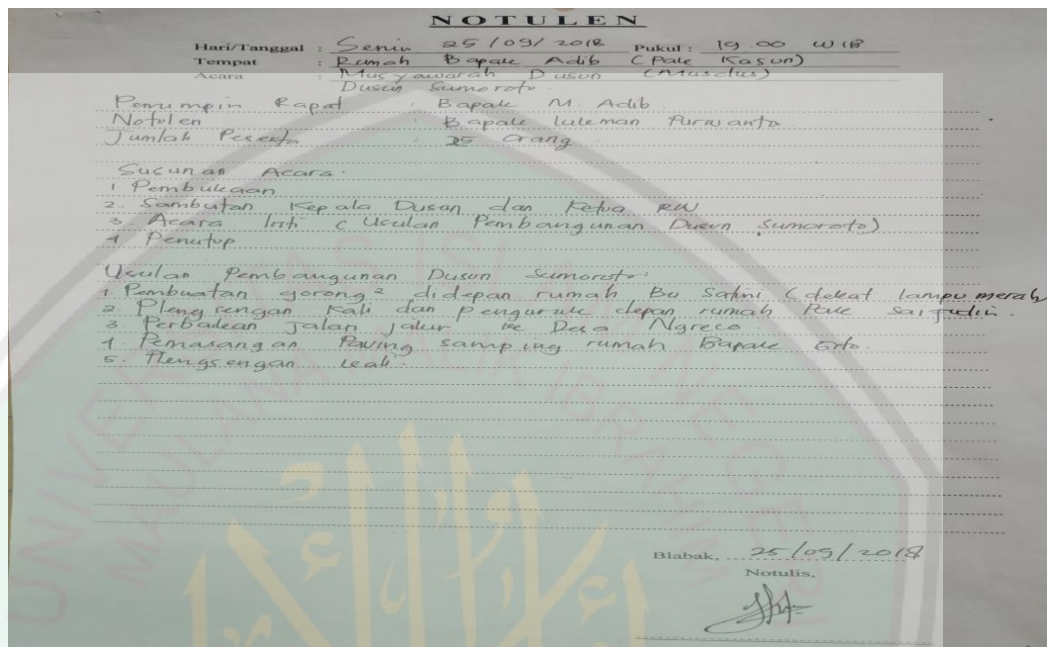 NOTULEN
Hari/Tanggal : Senin 25/09/2018 Pukul : 19.00 WIB
Tempat : Rumah Bapak Adib (Pak Kasun)
Acara : Musyawarah Dusun (Musdus)
Dusun Sumoroto.
Pemimpin Rapat : Bapak M. Adib
Notulen : Bapak Lukman Purwanto
Jumlah Peserta : 25 Orang
Susunan Acara.
1 Pembukaan
2. Sambutan Kepala Dusun dan Ketua RW
3 Acara Inti (Usulan Pembangunan Dusun Sumoroto)
4 Penutup
Usulan Pembangunan Dusun Sumoroto:
1. Pembuatan gorong² didepan rumah Bu Satini (dekat lampu merah
2. Plengsengan Kali dan Penguruk depan rumah Pak Saifudin.
3. Perbaikan Jalan Jalur ke Desa Ngreco.
4. Pemasangan Paving samping rumah Bapak Erto.
5. Plengsengan kali.
UNIVERSITAS ISLAM NEGERI
MAULANA MALIK IBRAHIM
Blabak, 25/09/2018
Notulis,